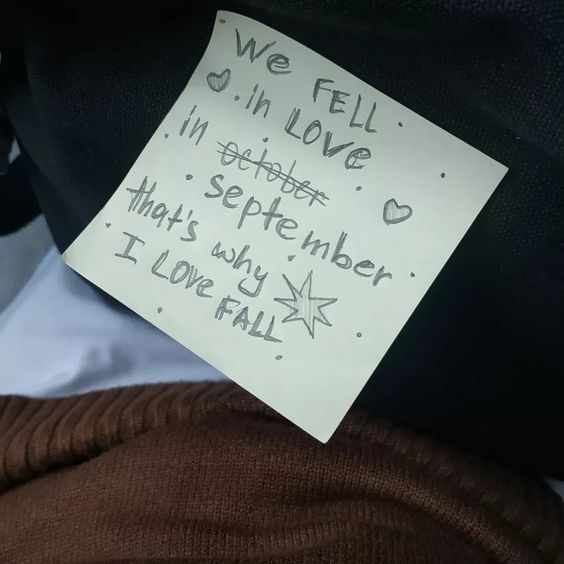 We FELL
in LOVE
in october
september
that's why
I LOVE FALL